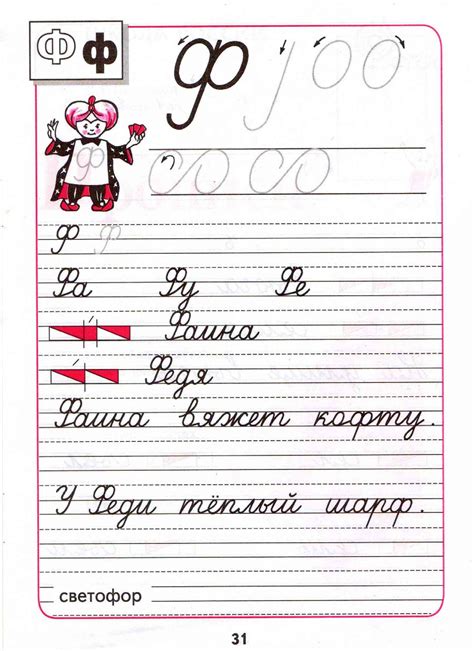 Ф ф
Ф
Ф
Ф Ф
Фа Фу Фе
Фаина
Федя
Фаина вяжет кофту.
У Феди тёплый шарф.
светофор
31